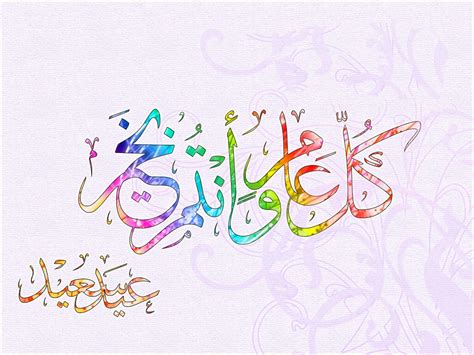 كُلّ عَام وَأَنتُم بِخَير
عيد سعيد